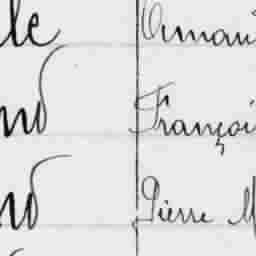 le Arman
nd Françoi
nd Pierre M